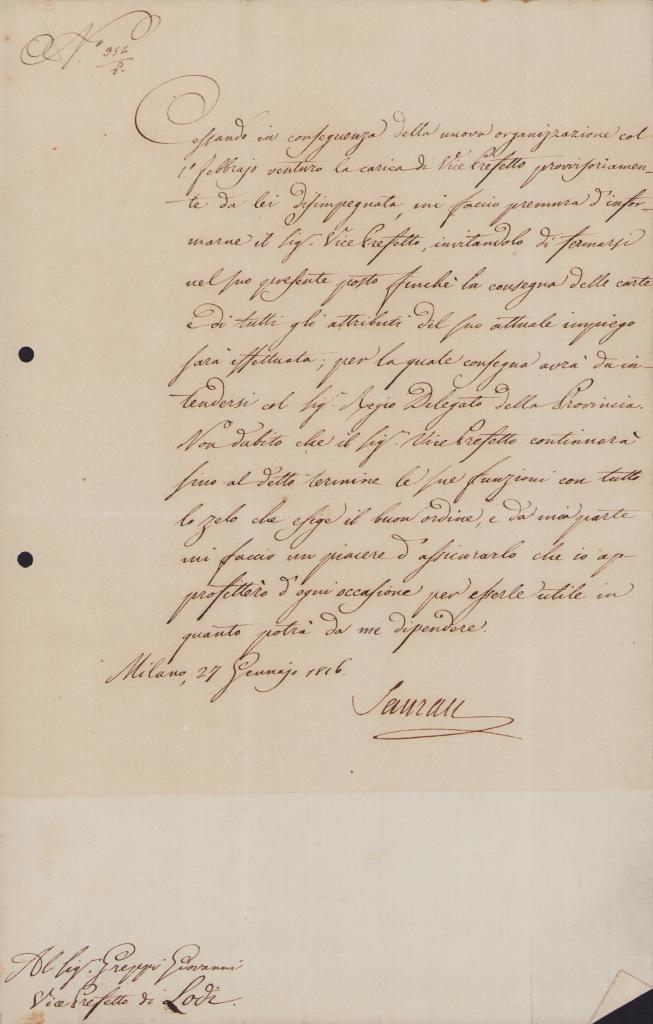 N.° 954/P.
Cessando in conseguenza della nuova organizzazione col
1° febbrajo venturo la carica di Vice Prefetto provvisoriamen-
te da lei disimpegnata, mi faccio premura d'infor-
marne il Sig.r Vice Prefetto, invitandolo di fermarsi
nel suo presente posto finchè la consegna delle carte
e di tutti gli attributi del suo attuale impiego
sarà effettuata; per la quale consegna avrà da in-
tendersi col Sig.r Regio Delegato della Provincia.
Non dubito che il Sig.r Vice Prefetto continuerà
sino al detto termine le sue funzioni con tutto
lo zelo che esige il buon ordine, e da mia parte
mi faccio un piacere d'assicurarlo che io ap-
profitterò d'ogni occasione per esserle utile in
quanto potrà da me dipendere.
Milano, 27 Gennajo 1816.
Saurau
Al Sig.r Greppi Giovanni
Vice Prefetto di Lodi.